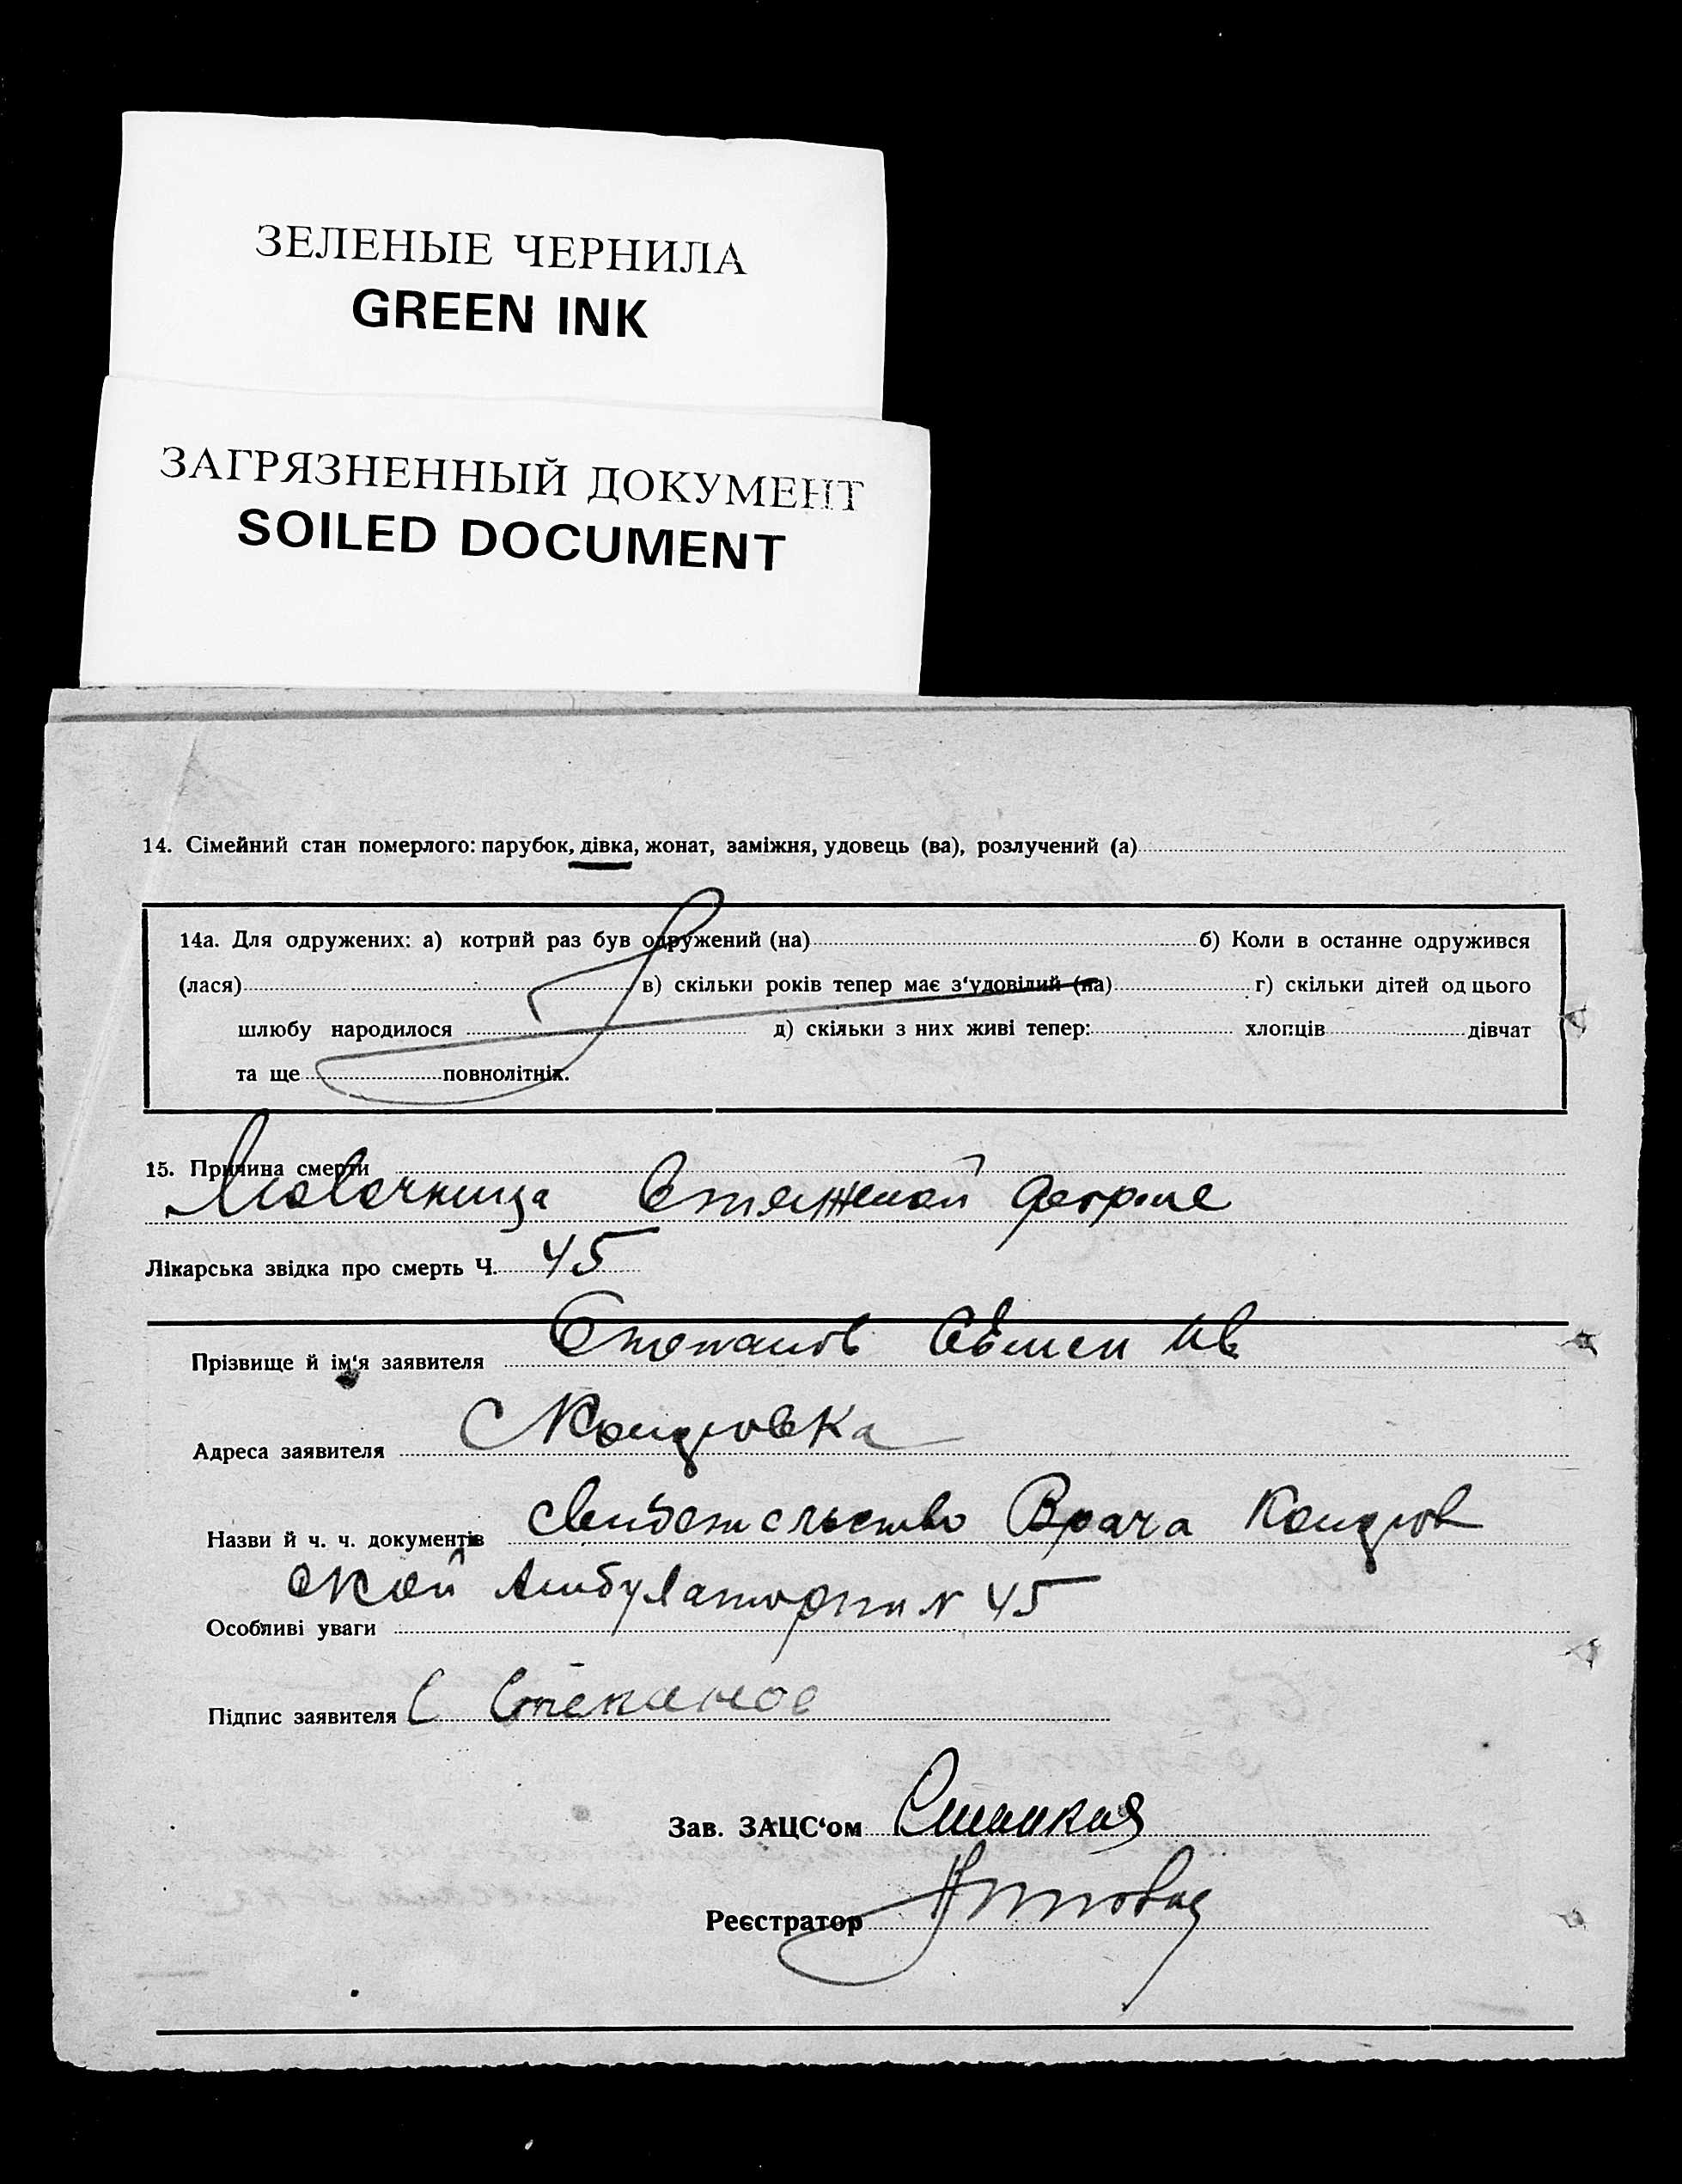 ЗЕЛЕНЫЕ ЧЕРНИЛА
GREEN INK
ЗАГРЯЗНЕННЫЙ ДОКУМЕНТ
SOILED DOCUMENT
14. Сімейний стан померлого: парубок, дівка, жонат, заміжня, удовець (ва), розлучений (а)
14а. Для одружених: а) котрий раз був одружений (на) б) Коли в останне одружився
(лася) в) скільки років тепер має з‘удовілий (на) г) скільки дітей од цього
шлюбу народилося д) скільки з них живі тепер: хлопців дівчат
та ще повнолітніх.
15. Причина смерти
Молочница в тяжелой форме
Лікарська звідка про смерть Ч. 45
Прізвище й ім‘я заявителя Степанов Семен Ив
Адреса заявителя С
Назви й ч. ч. документів Свидетельство Врача
ской Амбулатории № 45
Особливі уваги
Підпис заявителя С Степанов
Зав. ЗАЦС‘ом
Реєстратор